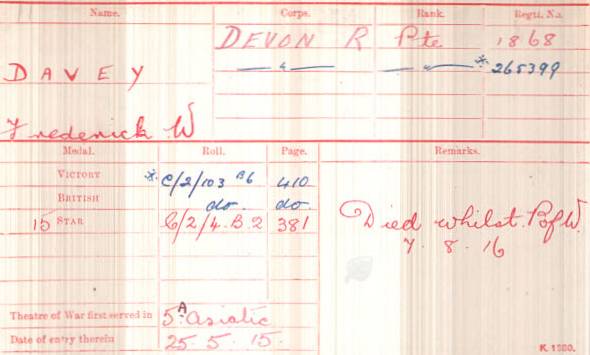 Name. Corps. Rank. Regtl. No.
DEVON R Pte 1868
DAVEY — " — — " — * 265399
Frederick W
Medal. Roll. Page. Remarks.
VICTORY * C/2/103 B6 410
BRITISH do. do.
15 STAR C/2/4.B.2 381
Died whilst. P of W.
7. 8. 16
Theatre of War first served in 5A Asiatic
Date of entry therein 25. 5. 15.
K. 1380.